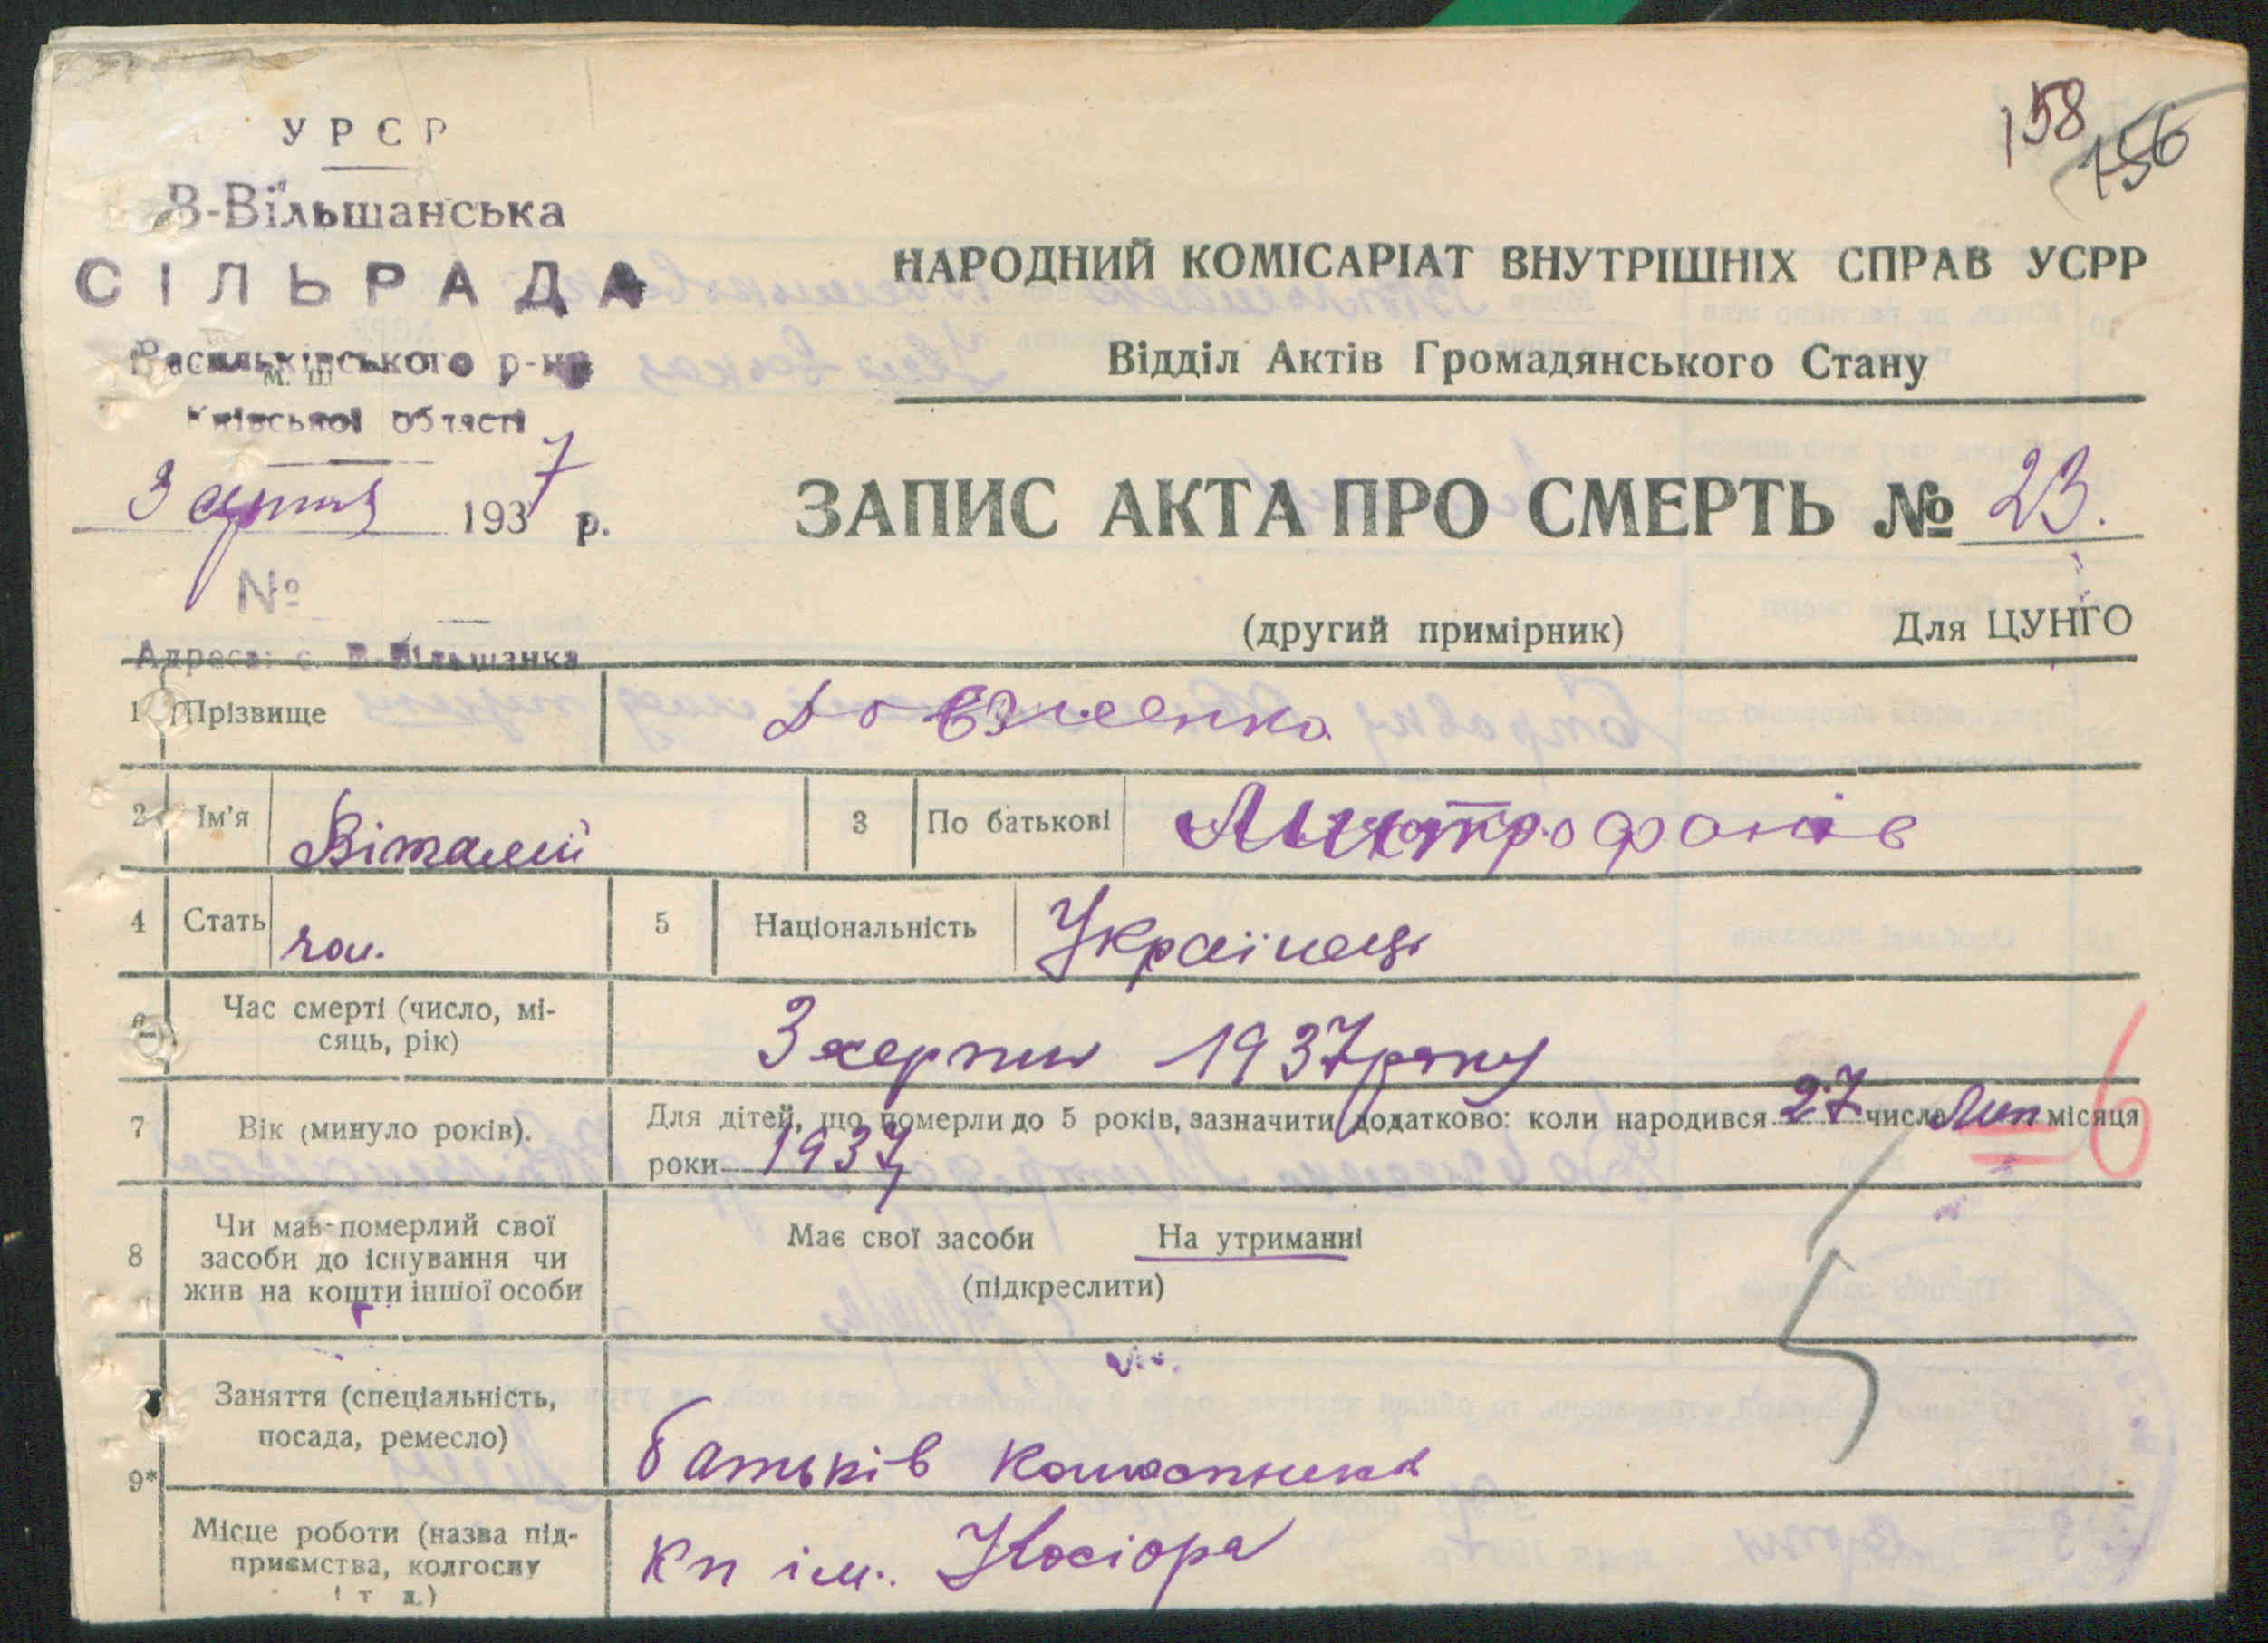 158
156
УРСР
В-Вільшанська
СІЛЬРАДА
Васильківського р-на
м. ш
Київської області
3 серпня 1937 р.
№
Адреса: с. В-Вільшанка
НАРОДНИЙ КОМІСАРІАТ ВНУТРІШНІХ СПРАВ УСРР
Відділ Актів Громадянського Стану
ЗАПИС АКТА ПРО СМЕРТЬ № 23.
(другий примірник) Для ЦУНГО
1 Прізвище Довженко
2 Ім'я Віталій 3 По батькові Митрофанів
4 Стать чол. 5 Національність Українець
6 Час смерті (число, мі-
сяць, рік) 3 серпня 1937 року
7 Вік (минуло років). Для дітей, що померли до 5 років, зазначити додатково: коли народився 27 числа Лип місяця
роки 1937
6
8 Чи мав померлий свої
засоби до існування чи
жив на кошти іншої особи
Має свої засоби На утриманні
(підкреслити)
5
9* Заняття (спеціальність,
посада, ремесло) батьків
Місце роботи (назва під-
приємства, колгоспу
і т д.)
Кп ім. Косіора